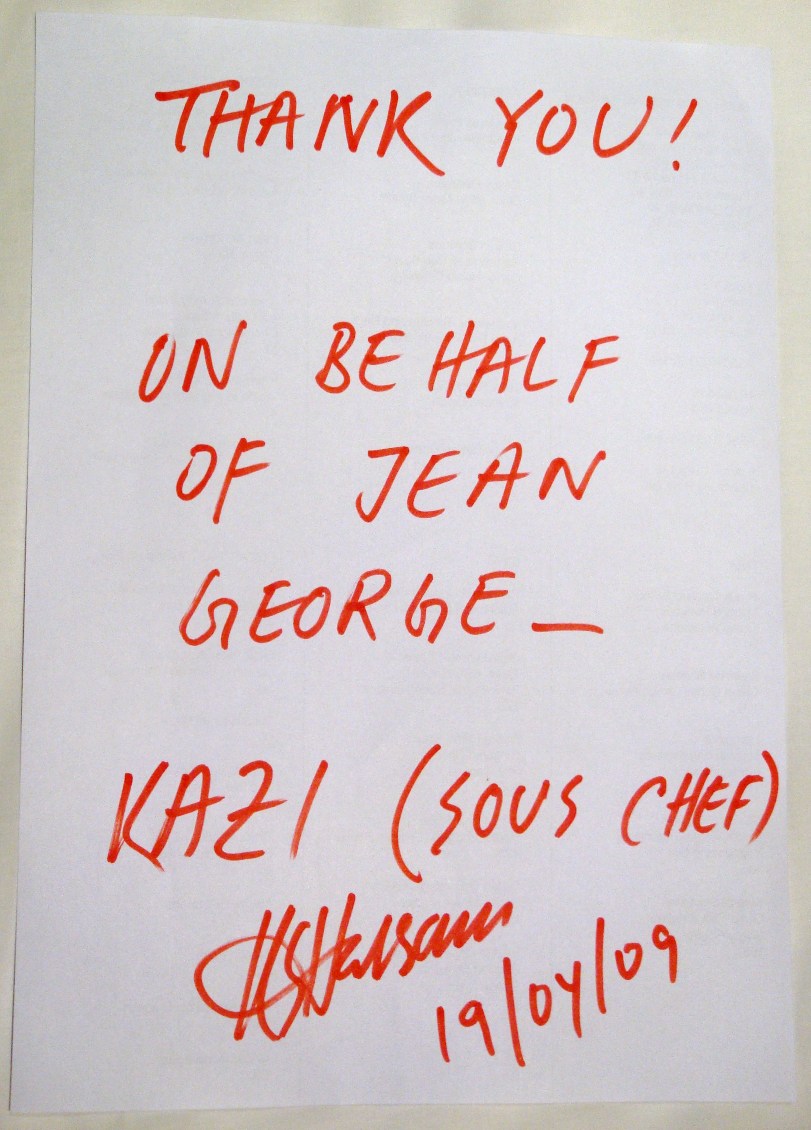 THANK YOU!
ON BEHALF
OF JEAN
GEORGE —
KAZI (SOUS CHEF)
19/04/09